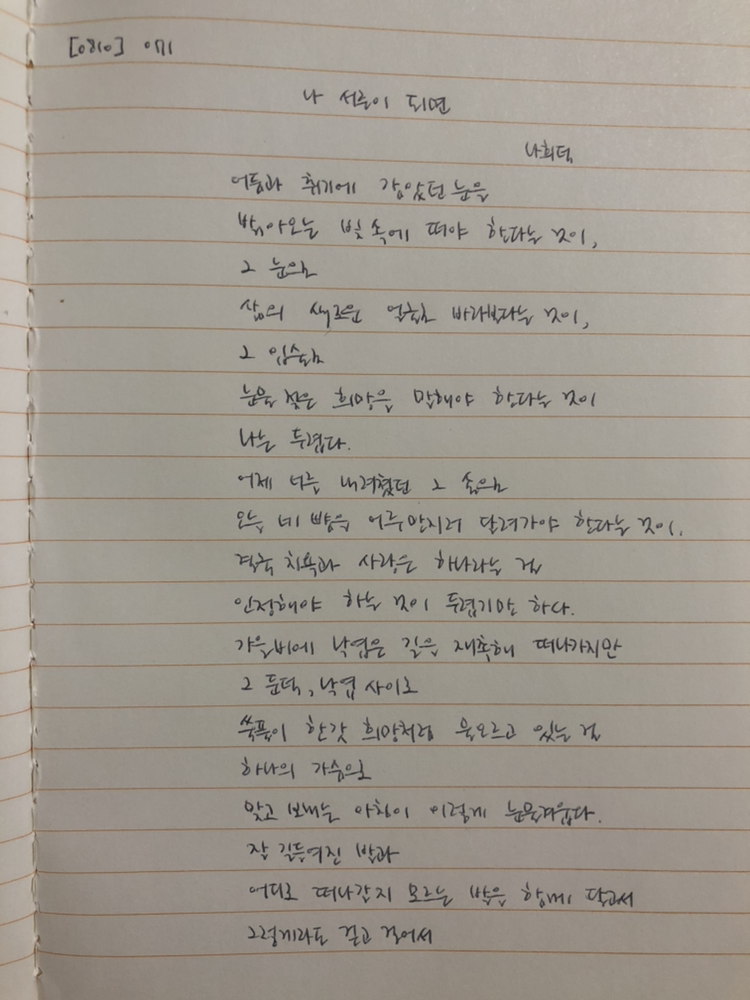 [0810] 071
나 서른이 되면
나희덕
어둠과 취기에 감았던 눈을
밝아오는 빛 속에 떠야 한다는 것이,
그 눈으로
삶의 새로운 얼굴을 바라본다는 것이,
그 입술로
눈물 젖은 희망을 말해야 한다는 것이
나는 두렵다.
어제 너를 내려쳤던 그 손으로
오늘 네 뺨을 어루만지러 달려가야 한다는 것이,
결국 치욕과 사랑은 하나라는 걸
인정해야 하는 것이 두렵기만 하다.
가을비에 낙엽은 길을 재촉해 떠나가지만
그 둔덕, 낙엽 사이로
쑥풀이 한갓 희망처럼 물오르고 있는 걸
하나의 가슴으로
맞고 보내는 아침이 이렇게 눈물겨웁다.
잘 길들여진 발과
어디로 떠나갈지 모르는 발을 함께 달고서
그렇게라도 걷고 걸어서